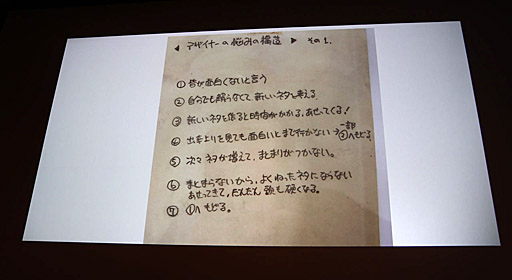 ◀ デザイナーの悩みの構造 ▶ その1.
① 皆が面白くないと言う
② 自分でも解らなくて、新しいネタを考える
③ 新しいネタを作ると時間がかかる、あせってくる!
④ 出来上りを見ても面白いとまで行かない
一部②へもどる
⑤ 次々ネタが増えて、まとまりがつかない。
⑥ まとまらないから、よくねったネタにならない
あせってきて、だんだん頭も硬くなる。
⑦ ①へもどる。